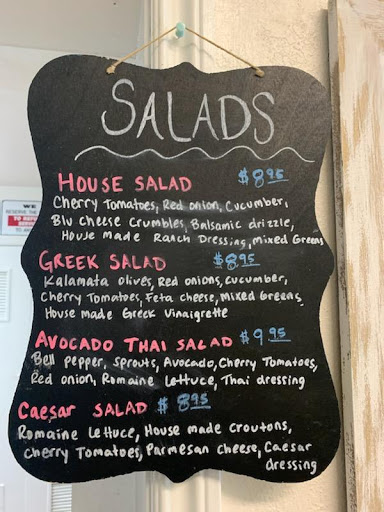 SALADS
HOUSE SALAD $8.95
Cherry Tomatoes, Red onion, Cucumber,
Blu cheese Crumbles, Balsamic drizzle,
House Made Ranch Dressing, Mixed Greens
GREEK SALAD $8.95
Kalamata olives, Red onions, cucumber,
Cherry Tomatoes, Feta cheese, Mixed Greens,
House made Greek Vinaigrette
AVOCADO THAI SALAD $9.95
Bell pepper, sprouts, Avocado, Cherry Tomatoes,
Red onion, Romaine Lettuce, Thai dressing
Caesar SALAD $8.95
Romaine Lettuce, House made croutons,
Cherry Tomatoes, Parmesan cheese, Caesar
dressing
WE
RESERVE THE
TO REFU